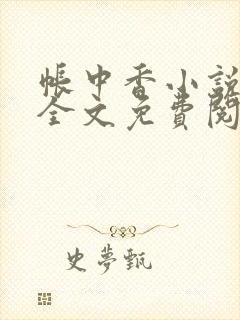 帳中香小說
全文免費閱
史夢甄